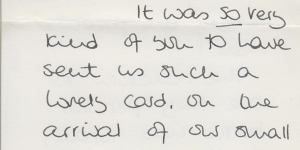 It was so very
kind of you to have
sent us such a
lovely card, on the
arrival of our small